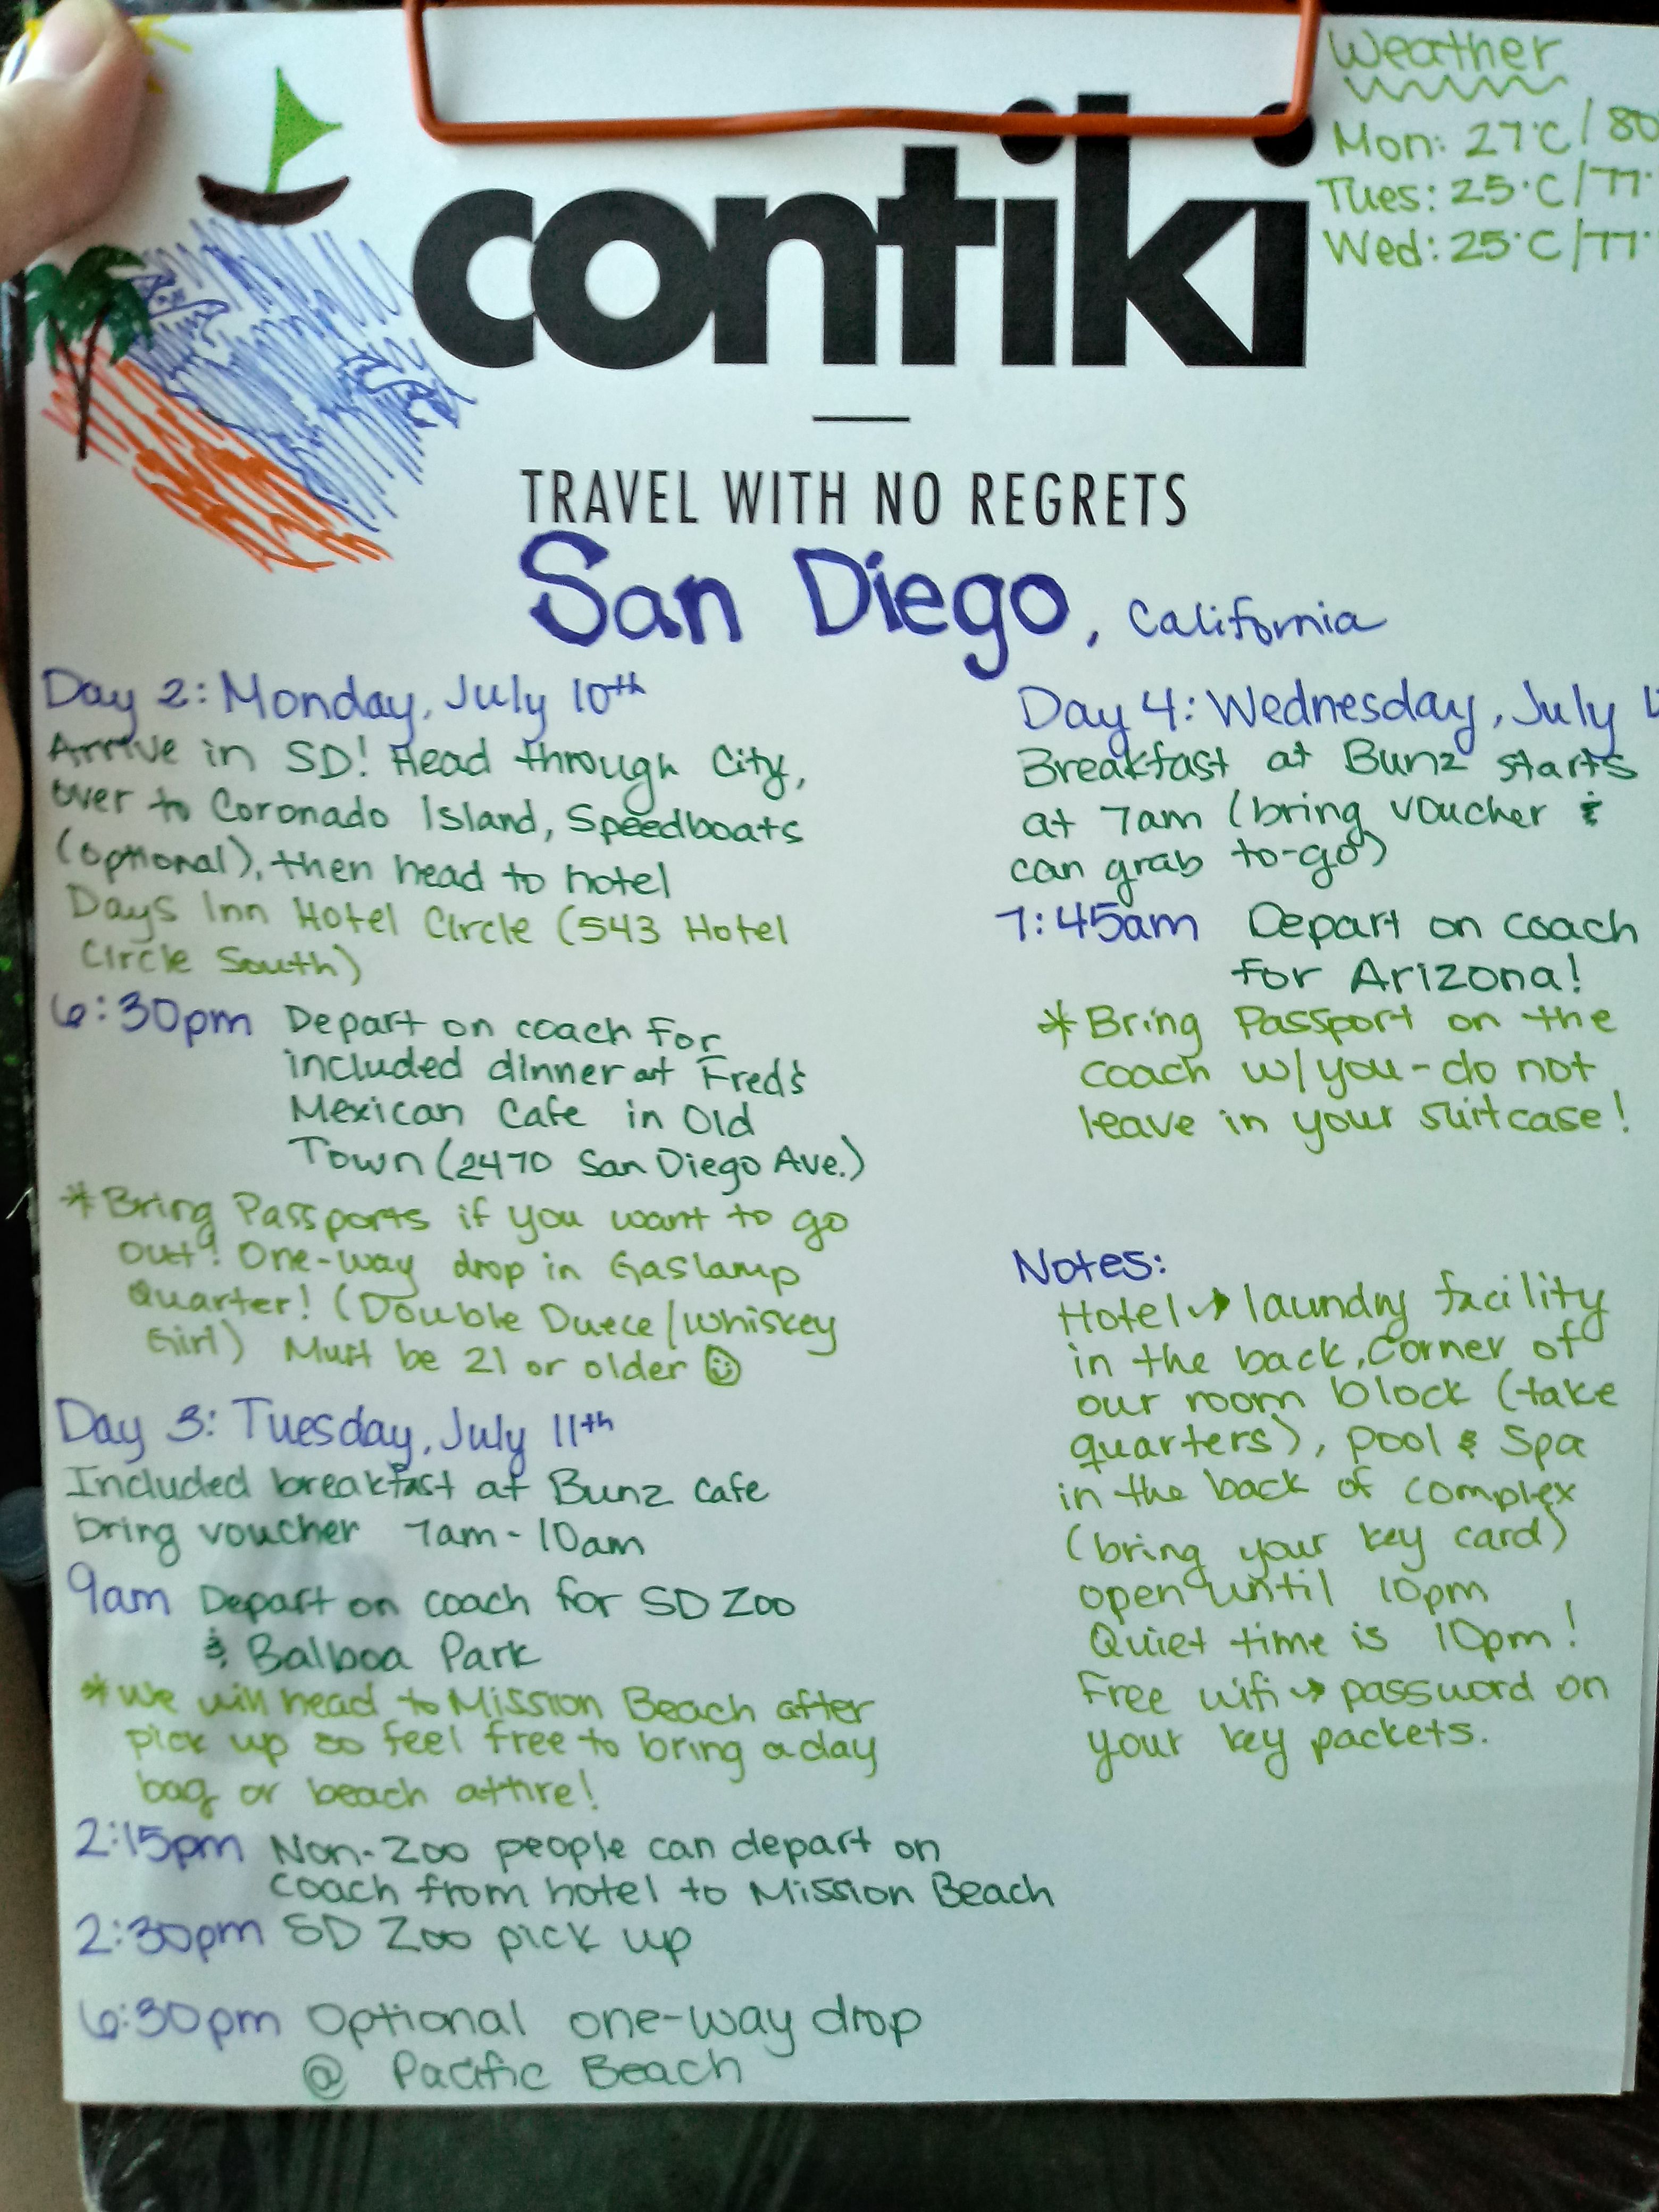 contiki
TRAVEL WITH NO REGRETS
San Diego, California
Weather
Mon: 27°C/80
Tues: 25°C/77°
Wed: 25°C/77°
Day 2: Monday, July 10th
Arrive in SD! Head through City,
over to Coronado Island, Speedboats
(optional), then head to hotel
Days Inn Hotel Circle (543 Hotel
Circle South)
6:30pm Depart on coach for
included dinner at Fred's
Mexican Cafe in Old
Town (2470 San Diego Ave.)
*Bring Passports if you want to go
out! One-way drop in Gaslamp
Quarter! (Double Duece/Whiskey
Girl) Must be 21 or older ☺
Day 3: Tuesday, July 11th
Included breakfast at Bunz Cafe
bring voucher 7am-10am
9am Depart on coach for SD Zoo
& Balboa Park
*We will head to Mission Beach after
pick up so feel free to bring a day
bag or beach attire!
2:15pm Non-Zoo people can depart on
coach from hotel to Mission Beach
2:30pm SD Zoo pick up
6:30pm Optional one-way drop
@ Pacific Beach
Day 4: Wednesday, July
Breakfast at Bunz starts
at 7am (bring voucher &
can grab to-go)
7:45am Depart on coach
for Arizona!
*Bring Passport on the
coach w/you-do not
leave in your suitcase!
Notes:
Hotel → laundry facility
in the back, corner of
our room block (take
quarters), pool & spa
in the back of complex
(bring your key card)
open until 10pm
Quiet time is 10pm!
Free wifi → password on
your key packets.